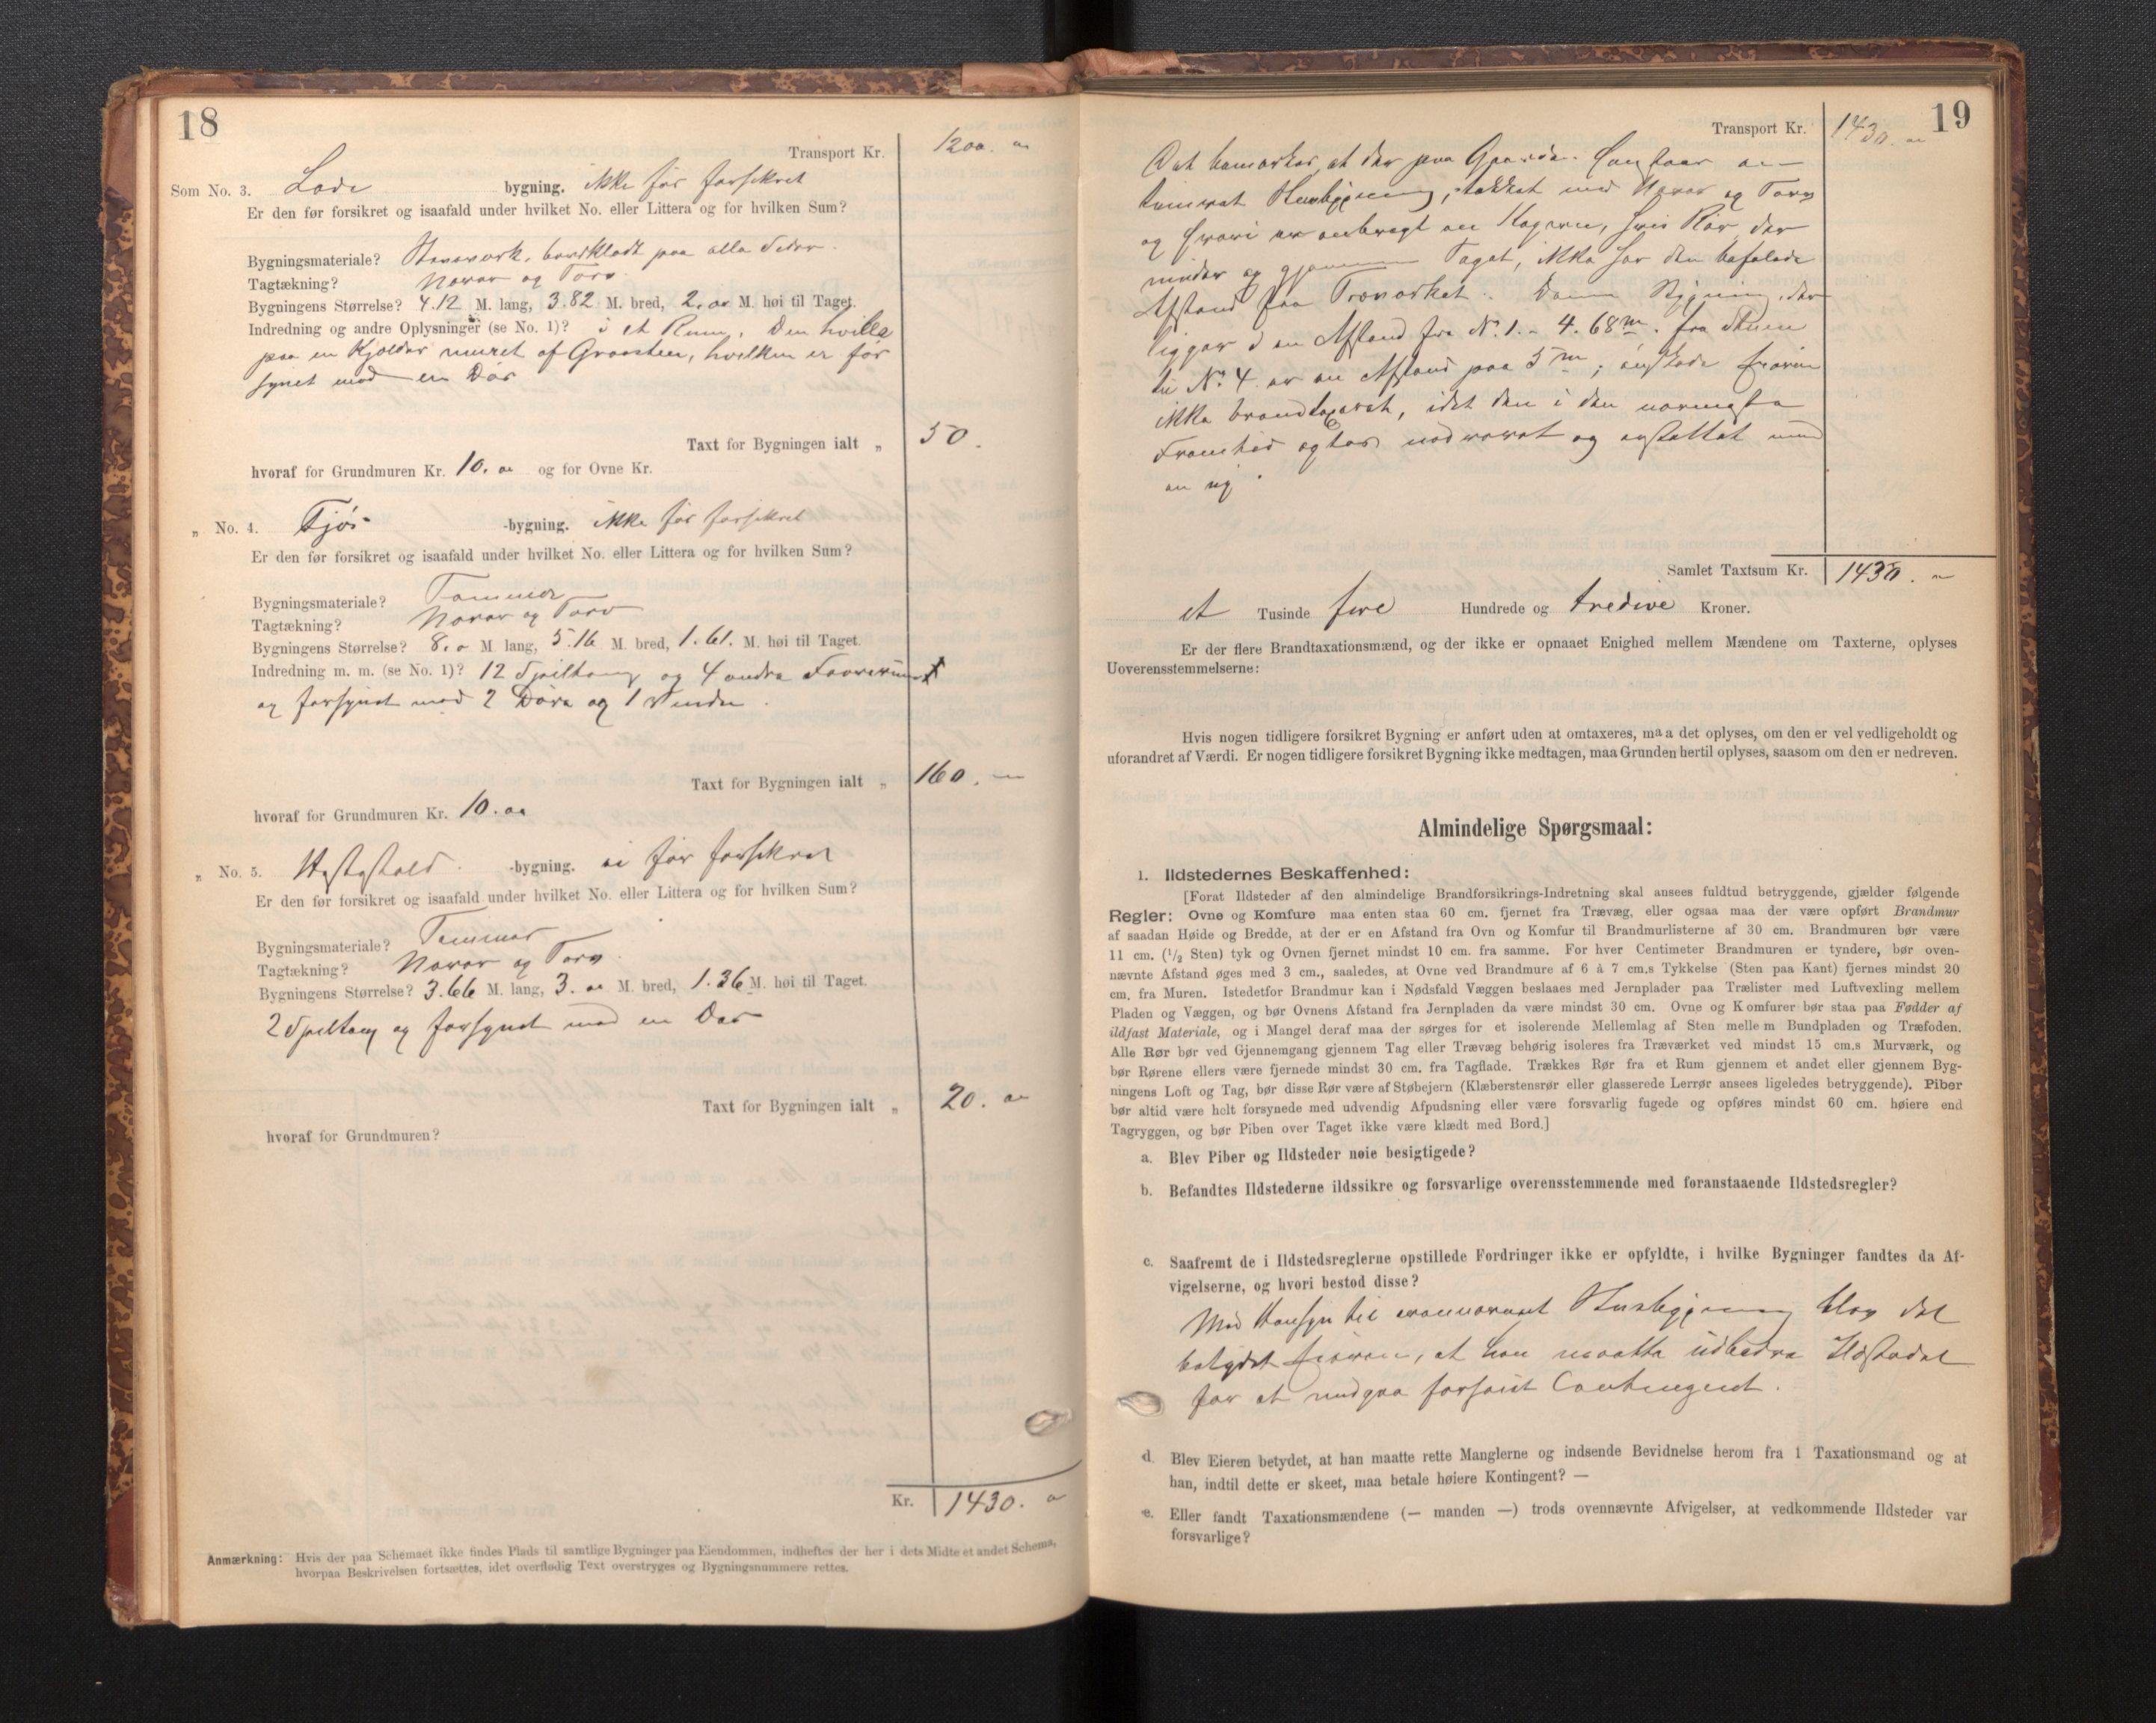 18
Transport Kr. 1200. „
Som No. 3. Lade bygning. ikke før forsikret
Er den før forsikret og isaafald under hvilket No. eller Littera og for hvilken Sum?
Bygningsmateriale? Stavverk, bordklædt paa alle Sider.
Tagtækning? Næver og Torv
Bygningens Størrelse? 4.12 M. lang, 3.82 M. bred, 2.00 M. høi til Taget.
Indredning og andre Oplysninger (se No. 1)? i et Rum. Den hviler
paa en Kjælder muret af Graasten, hvilken er for
synet med en Dør
Taxt for Bygningen ialt „ 50.
hvoraf for Grundmuren Kr. 10. 00 og for Ovne Kr.
„ No. 4. Fjøs -bygning. ikke før forsikret
Er den før forsikret og isaafald under hvilket No. eller Littera og for hvilken Sum?
Bygningsmateriale? Tømmer
Tagtækning? Næver og Torv
Bygningens Størrelse? 8.0 M. lang, 5.16 M. bred, 1.61. M. høi til Taget.
Indredning m. m. (se No. 1)? 12 Spiltoug og 4 andre
og forsynet med 2 Døre og 1 Vindu.
Taxt for Bygningen ialt „ 160. „
hvoraf for Grundmuren Kr. 10. 00
„ No. 5. Hestestald -bygning. ei før forsikret
Er den før forsikret og isaafald under hvilket No. eller Littera og for hvilken Sum?
Bygningsmateriale? Tømmer
Tagtækning? Næver og Torv.
Bygningens Størrelse? 3.66 M. lang, 3. 00 M. bred, 1.36 M. høi til Taget.
2 Spiltoug og forsynet med en Dør
Taxt for Bygningen ialt „ 20. 00
hvoraf for Grundmuren?
Kr. 1430. 0
Anmærkning: Hvis der paa Schemaet ikke findes Plads til samtlige Bygninger paa Eiendommen, indheftes der her i dets Midte et andet Schema,
hvorpaa Beskrivelsen fortsættes, idet overflødig Text overstryges og Bygningsnummere rettes.
19
Transport Kr. 1430. „
Det bemærkes, at der paa Gaarden en
tømret Husbygning, tækket med Næver og Torv
og hvori er anbragt en Kogeovn, hvis Rør, der
gjennem Taget, ikke har den befalede
Afstand fra Træverket. Denne Bygning, der
ligger i en Afstand fra No. 1. - 4.68 m. fra
til No. 4 er en Afstand paa 5 m; ønskede Eieren
ikke brandtaxeret, idet den i den nærmeste
Fremtid agtes nedrevet og erstattet med
en ny.
Samlet Taxtsum Kr. 1430. „
et Tusinde fire Hundrede og tredive Kroner.
Er der flere Brandtaxationsmænd, og der ikke er opnaaet Enighed mellem Mændene om Taxterne, oplyses
Uoverensstemmelserne:
Hvis nogen tidligere forsikret Bygning er anført uden at omtaxeres, maa det oplyses, om den er vel vedligeholdt og
uforandret af Værdi. Er nogen tidligere forsikret Bygning ikke medtagen, maa Grunden hertil oplyses, saasom om den er nedreven.
Almindelige Spørgsmaal:
1. Ildstedernes Beskaffenhed:
[Forat Ildsteder af den almindelige Brandforsikrings-Indretning skal ansees fuldtud betryggende, gjælder følgende
Regler: Ovne og Komfure maa enten staa 60 cm. fjernet fra Trævæg, eller ogsaa maa der være opført Brandmur
af saadan Høide og Bredde, at der er en Afstand fra Ovn og Komfur til Brandmurlisterne af 30 cm. Brandmuren bør være
11 cm. (1/2 Sten) tyk og Ovnen fjernet mindst 10 cm. fra samme. For hver Centimeter Brandmuren er tyndere, bør oven-
nævnte Afstand øges med 3 cm., saaledes, at Ovne ved Brandmure af 6 à 7 cm.s Tykkelse (Sten paa Kant) fjernes mindst 20
cm. fra Muren. Istedetfor Brandmur kan i Nødsfald Væggen beslaaes med Jernplader paa Trælister med Luftvexling mellem
Pladen og Væggen, og bør Ovnens Afstand fra Jernpladen da være mindst 30 cm. Ovne og Komfurer bør staa paa Fødder af
ildfast Materiale, og i Mangel deraf maa der sørges for et isolerende Mellemlag af Sten mellem Bundpladen og Træfoden.
Alle Rør bør ved Gjennemgang gjennem Tag eller Trævæg behørig isoleres fra Træværket ved mindst 15 cm.s Murværk, og
bør Rørene ellers være fjernede mindst 30 cm. fra Tagflade. Trækkes Rør fra et Rum gjennem et andet eller gjennem Byg-
ningens Loft og Tag, bør disse Rør være af Støbejern (Klæberstensrør eller glasserede Lerrør ansees ligeledes betryggende). Piber
bør altid være helt forsynede med udvendig Afpudsning eller være forsvarlig fugede og opføres mindst 60 cm. høiere end
Tagryggen, og bør Piben over Taget ikke være klædt med Bord.]
a. Blev Piber og Ildsteder nøie besigtigede?
b. Befandtes Ildstederne ildssikre og forsvarlige overensstemmende med foranstaaende Ildstedsregler?
c. Saafremt de i Ildstedsreglerne opstillede Fordringer ikke er opfyldte, i hvilke Bygninger fandtes da Af-
vigelserne, og hvori bestod disse?
Med Hensyn til ovennævnt Husbygning blev det
betydet Eieren, at han maatte udbedre Ildstedet
for at undgaa forhøiet Contingent.
d. Blev Eieren betydet, at han maatte rette Manglerne og indsende Bevidnelse herom fra 1 Taxationsmand og at
han, indtil dette er skeet, maa betale høiere Kontingent? —
e. Eller fandt Taxationsmændene (— manden —) trods ovennævnte Afvigelser, at vedkommende Ildsteder var
forsvarlige?